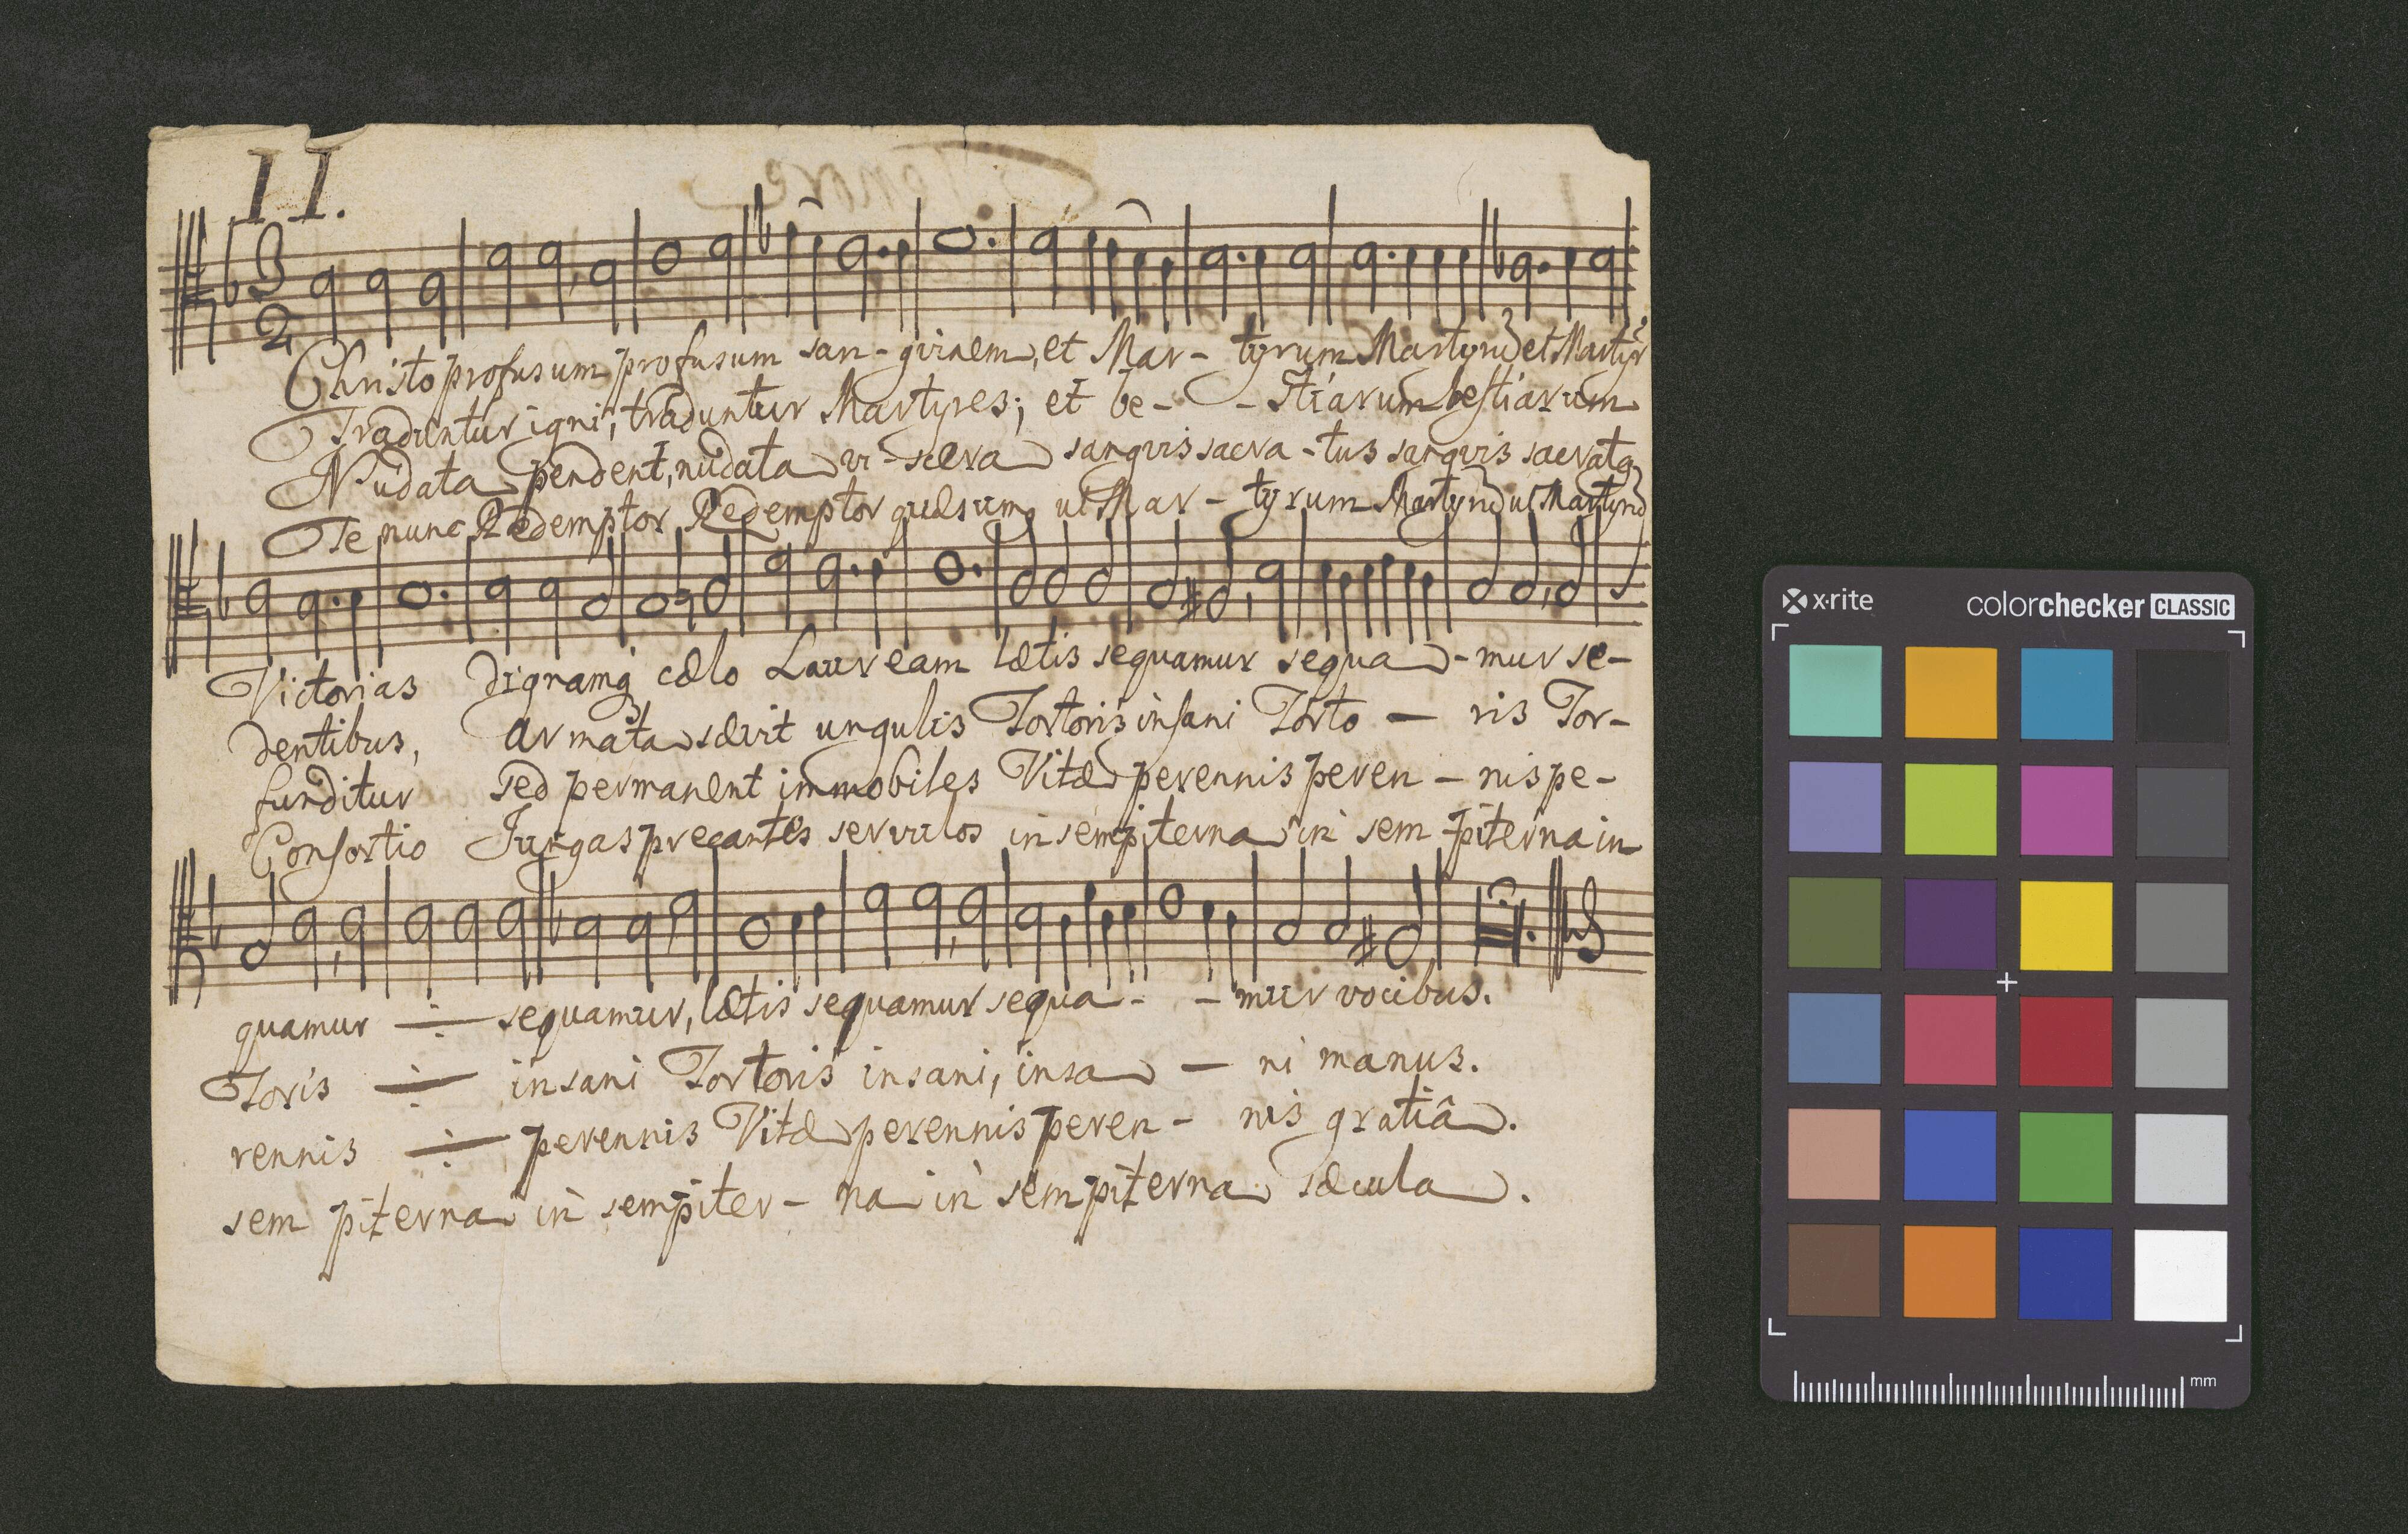 II.
3
2
Christo profusum profusum san-guinem, et Mar- tyrum Martyrũ et Martyr̃
Traduntur igni, traduntur Martyres; et be- - stiarum bestiarum
Nudata pendent, nudata vi-scera sanguis sacra-tus sanguis sacratq
Te nunc Redemptor Redemptor quæsumq ut Mar-tyrum Martyrũ ut Martyrũ
Victorias Dignamq cælo Lauream lætis sequamur sequa-mur se-
dentibus, Armata sævit ungulis Tortoris insani Torto - ris Tor-
funditur Sed permanent immobiles Vitæ perennis peren - nis pe-
Consortio Jungas precantes servulos in sempiterna in sem-piterna in
quamur ÷ sequamur, lætis sequamur sequa- - mur vocibus.
Toris ÷ insani Tortoris insani, insa - ni manus.
rennis ÷ perennis Vitæ perennis peren- nis gratiâ.
sem piterna in sempiter- na in sempiterna sæcula.
x·rite colorchecker CLASSIC
mm